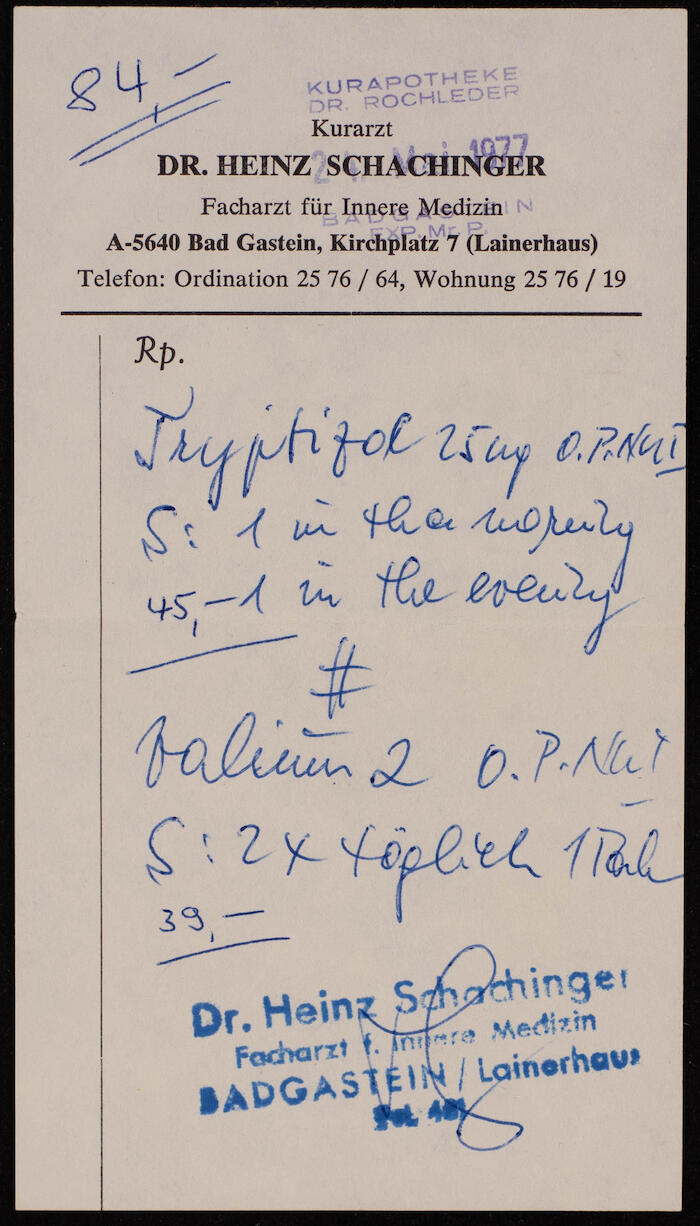 84,-
KURAPOTHEKE
DR. ROCHLEDER
Kurarzt
Mai 1977
DR. HEINZ SCHACHINGER
Facharzt für Innere Medizin
BADGASTEIN
EXP. Mr. P.
A-5640 Bad Gastein, Kirchplatz 7 (Lainerhaus)
Telefon: Ordination 25 76 / 64, Wohnung 25 76 / 19
Rp.
Tryptizol 25mg O.P.No I
S: 1 in the morning
45,- 1 in the evening
#
Valium 2 O.P.No I
S: 2x täglich 1 Tabl
39,-
Dr. Heinz Schachinger
Facharzt f. Innere Medizin
BADGASTEIN / Lainerhaus